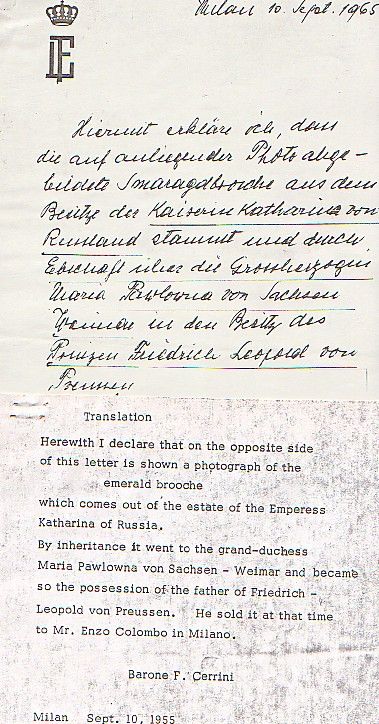 Milan 10. Sept. 1965
Hiermit erkläre ich, dass
die auf anliegender Photo abge-
bildete Smaragdbrosche aus dem
Besitze der Kaiserin Katharina von
Russland stammt und durch
Erbschaft über die Grossherzogin
Maria Pawlowna von Sachsen
Weimar in den Besitz des
Prinzen Friedrich Leopold von
Preussen
Translation
Herewith I declare that on the opposite side
of this letter is shown a photograph of the
emerald brooche
which comes out of the estate of the Emperess
Katharina of Russia.
By inheritance it went to the grand-duchess
Maria Pawlowna von Sachsen - Weimar and became
so the possession of the father of Friedrich -
Leopold von Preussen. He sold it at that time
to Mr. Enzo Colombo in Milano.
Barone F. Cerrini
Milan Sept. 10, 1955